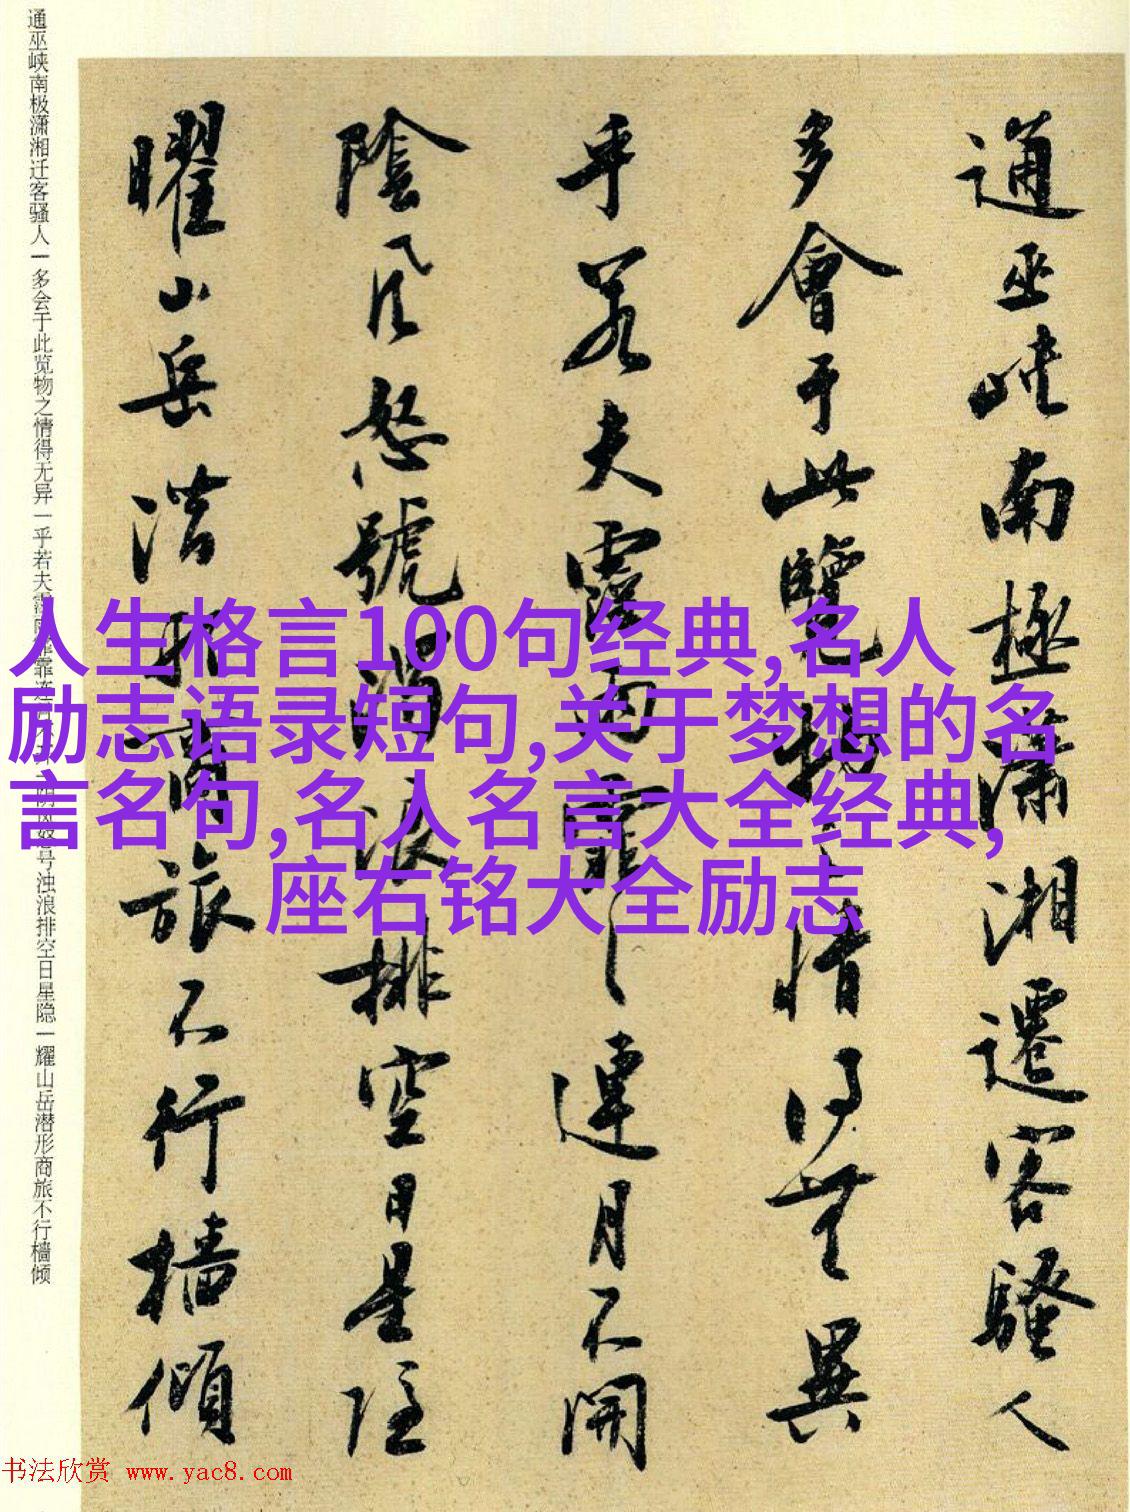 通巫峡南極瀟湘遷客騷人
多會于此覽物之情得無異
乎若夫霪雨霏〻連月不開
陰風怒號濁浪排空日星隱
曜山岳潜形商旅不行檣傾
通巫峡南极潇湘迁客骚人一多会于此览物之情得无异一乎若夫霪雨霏靠连月不开一阴风怒号浊浪排空日星隐一耀山岳潜形商旅不行檣倾
人生格言100句经典,名人
励志语录短句,关于梦想的名
言名句,名人名言大全经典,
座右铭大全励志
书法欣赏 www.yac8.com